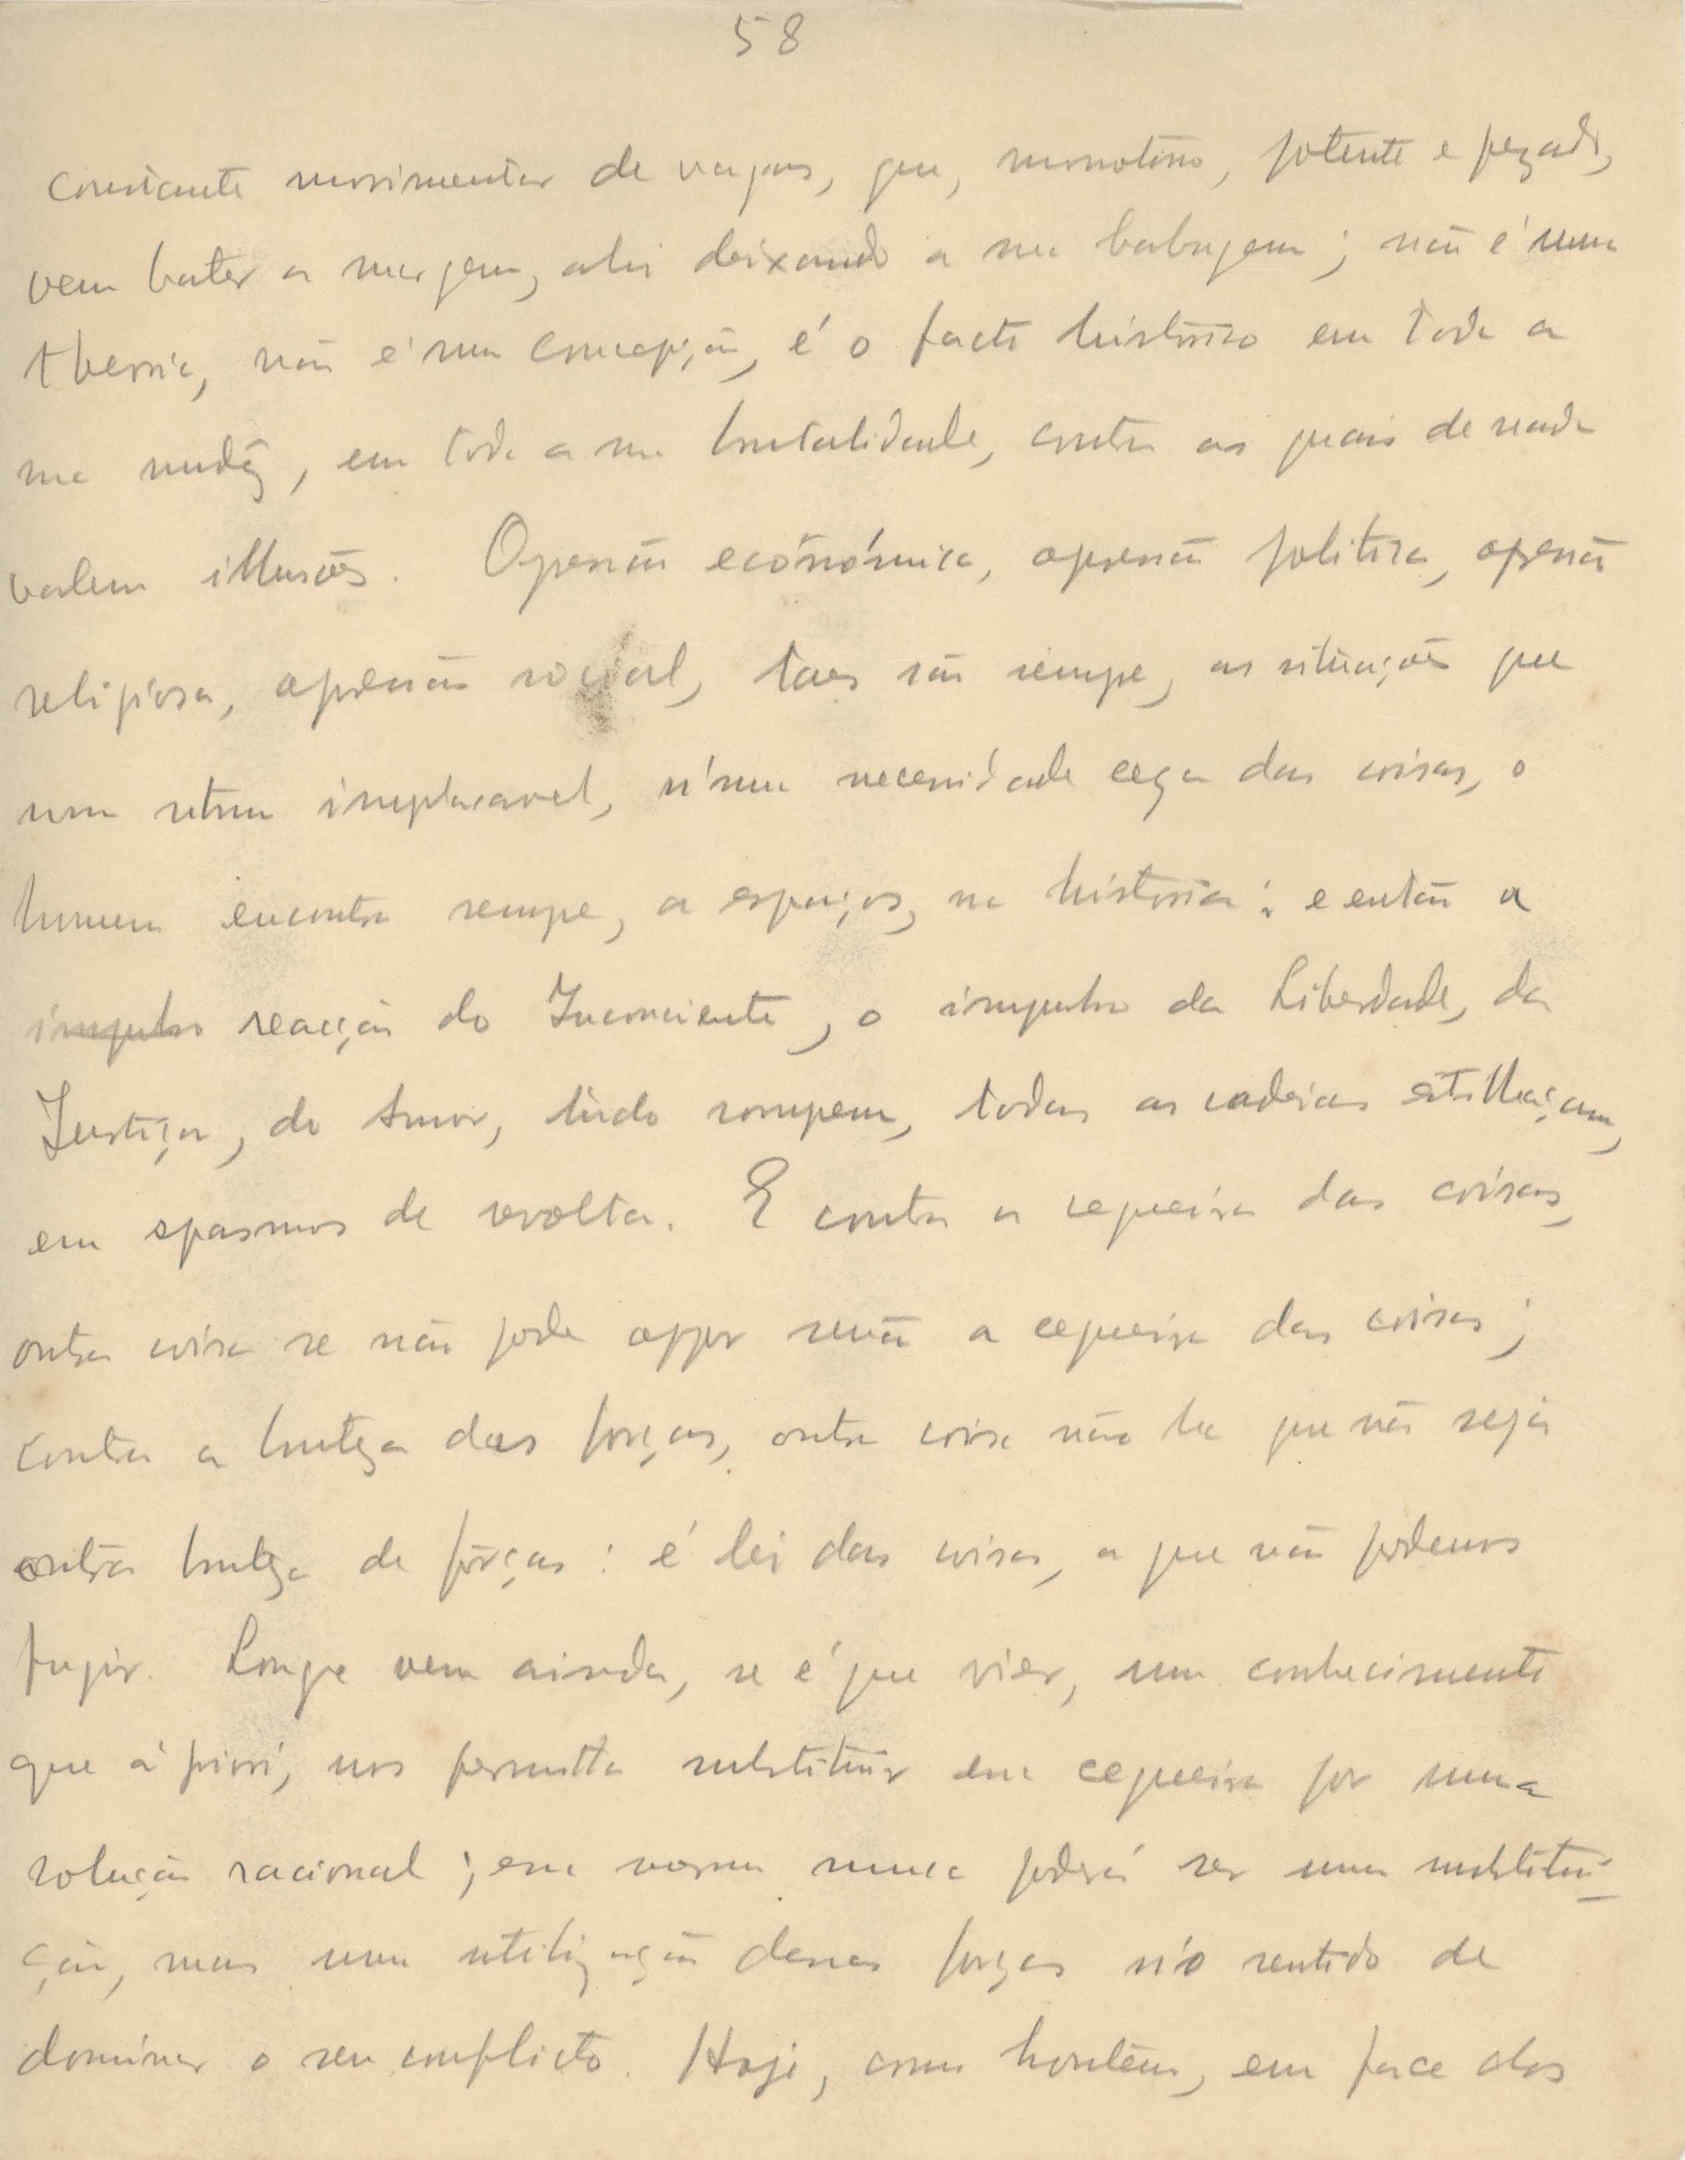 58
constante movimentar de vagas, que, monotono, potente e pezado,
vem bater a margem, ahi deixando a sua babugem; não é uma
theoria, não é uma concepção, é o facto histórico em toda a
sua nudêz, em toda a sua brutalidade, contra as quais de nada
valem illusões. Opressão económica, opressão politica, opressão
religiosa, opressão social, taes são sempre, as situações que
num ritmo implacavel, n'uma necessidade cega das coisas, o
homem encontra sempre, a espaços, na historia: e então a
impulso reacção do Inconsciente, o impulso da Liberdade, da
Justiça, do Amor, tudo rompem, todas as cadeias estilhaçam,
em spasmos de revolta. E contra a cegueira das coisas,
outra coisa se não pode oppor senão a cegueira das coisas;
contra a bruteza das forças, outra coisa não ha que não seja
outra bruteza de fôrças: é lei das coisas, a que não podemos
fugir. Longe vem ainda, se é que vier, um conhecimento
que á priori, nos permitta substituir essa cegueira por uma
solução racional; essa mesma nunca poderá ser uma substitui-
ção, mas uma utilização dessas forças n'o sentido de
dominar o seu conflicto. Hoje, como hontem, em face dos